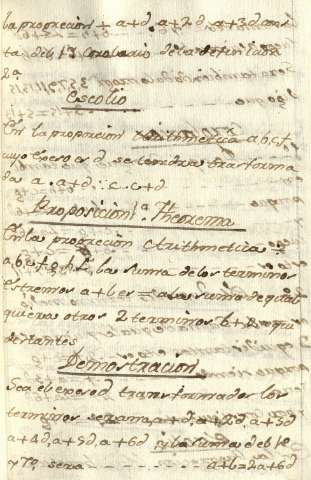 la progrecion ÷ a+d. a+2d. a+3d cons
ta del 1º Corolario de la definicion
2ª
Escolio
En la progrecion Arithmetica a b, c, f
cuyo exeso es d, se tendra transforma
da a . a+d : c . c+d
Proposicion 1ª Theorema
En la progrecion Arithmetica
a, b, c, f, g, h, k la suma de los terminos
estremos a+k es = a la suma de quales
quiera otros 2 terminos b+h equi
distantes
Demostracion
Sea el exeso d, transformados los
terminos seran a, a+d, a+2d, a+3d
a+4d, a+5d, a+6d y la suma del 1º
y 7º sera a+k=2a+6d